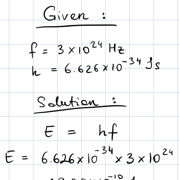 Given :
f = 3 × 10²⁴ Hz
h = 6.626 × 10⁻³⁴ Js
Solution :
E = hf
E = 6.626 × 10⁻³⁴ × 3 × 10²⁴